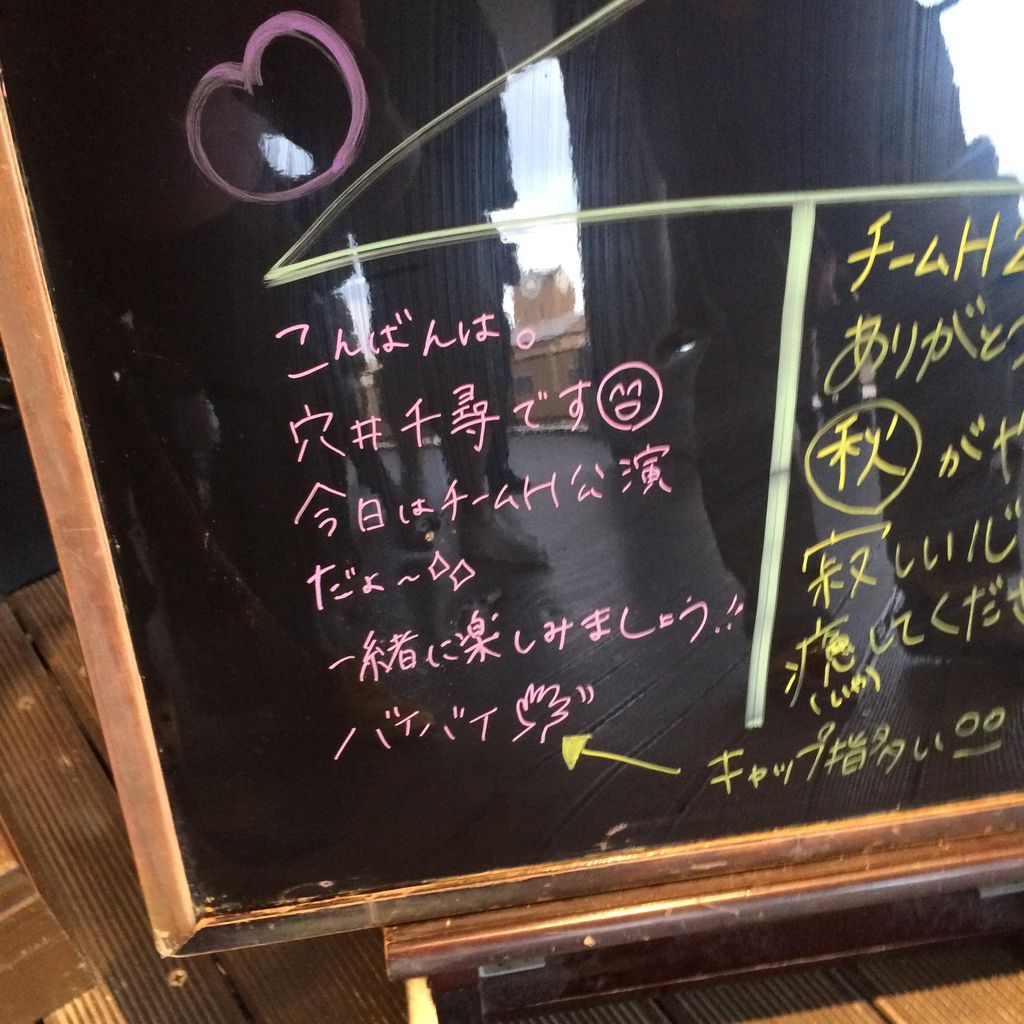 こんばんは。
穴井千尋です
今日はチームH公演
だよ〜
一緒に楽しみましょう!!
バイバイ
チームH公
ありがとう
秋がや
寂しい
癒してくださ
いや
キャップ指多い